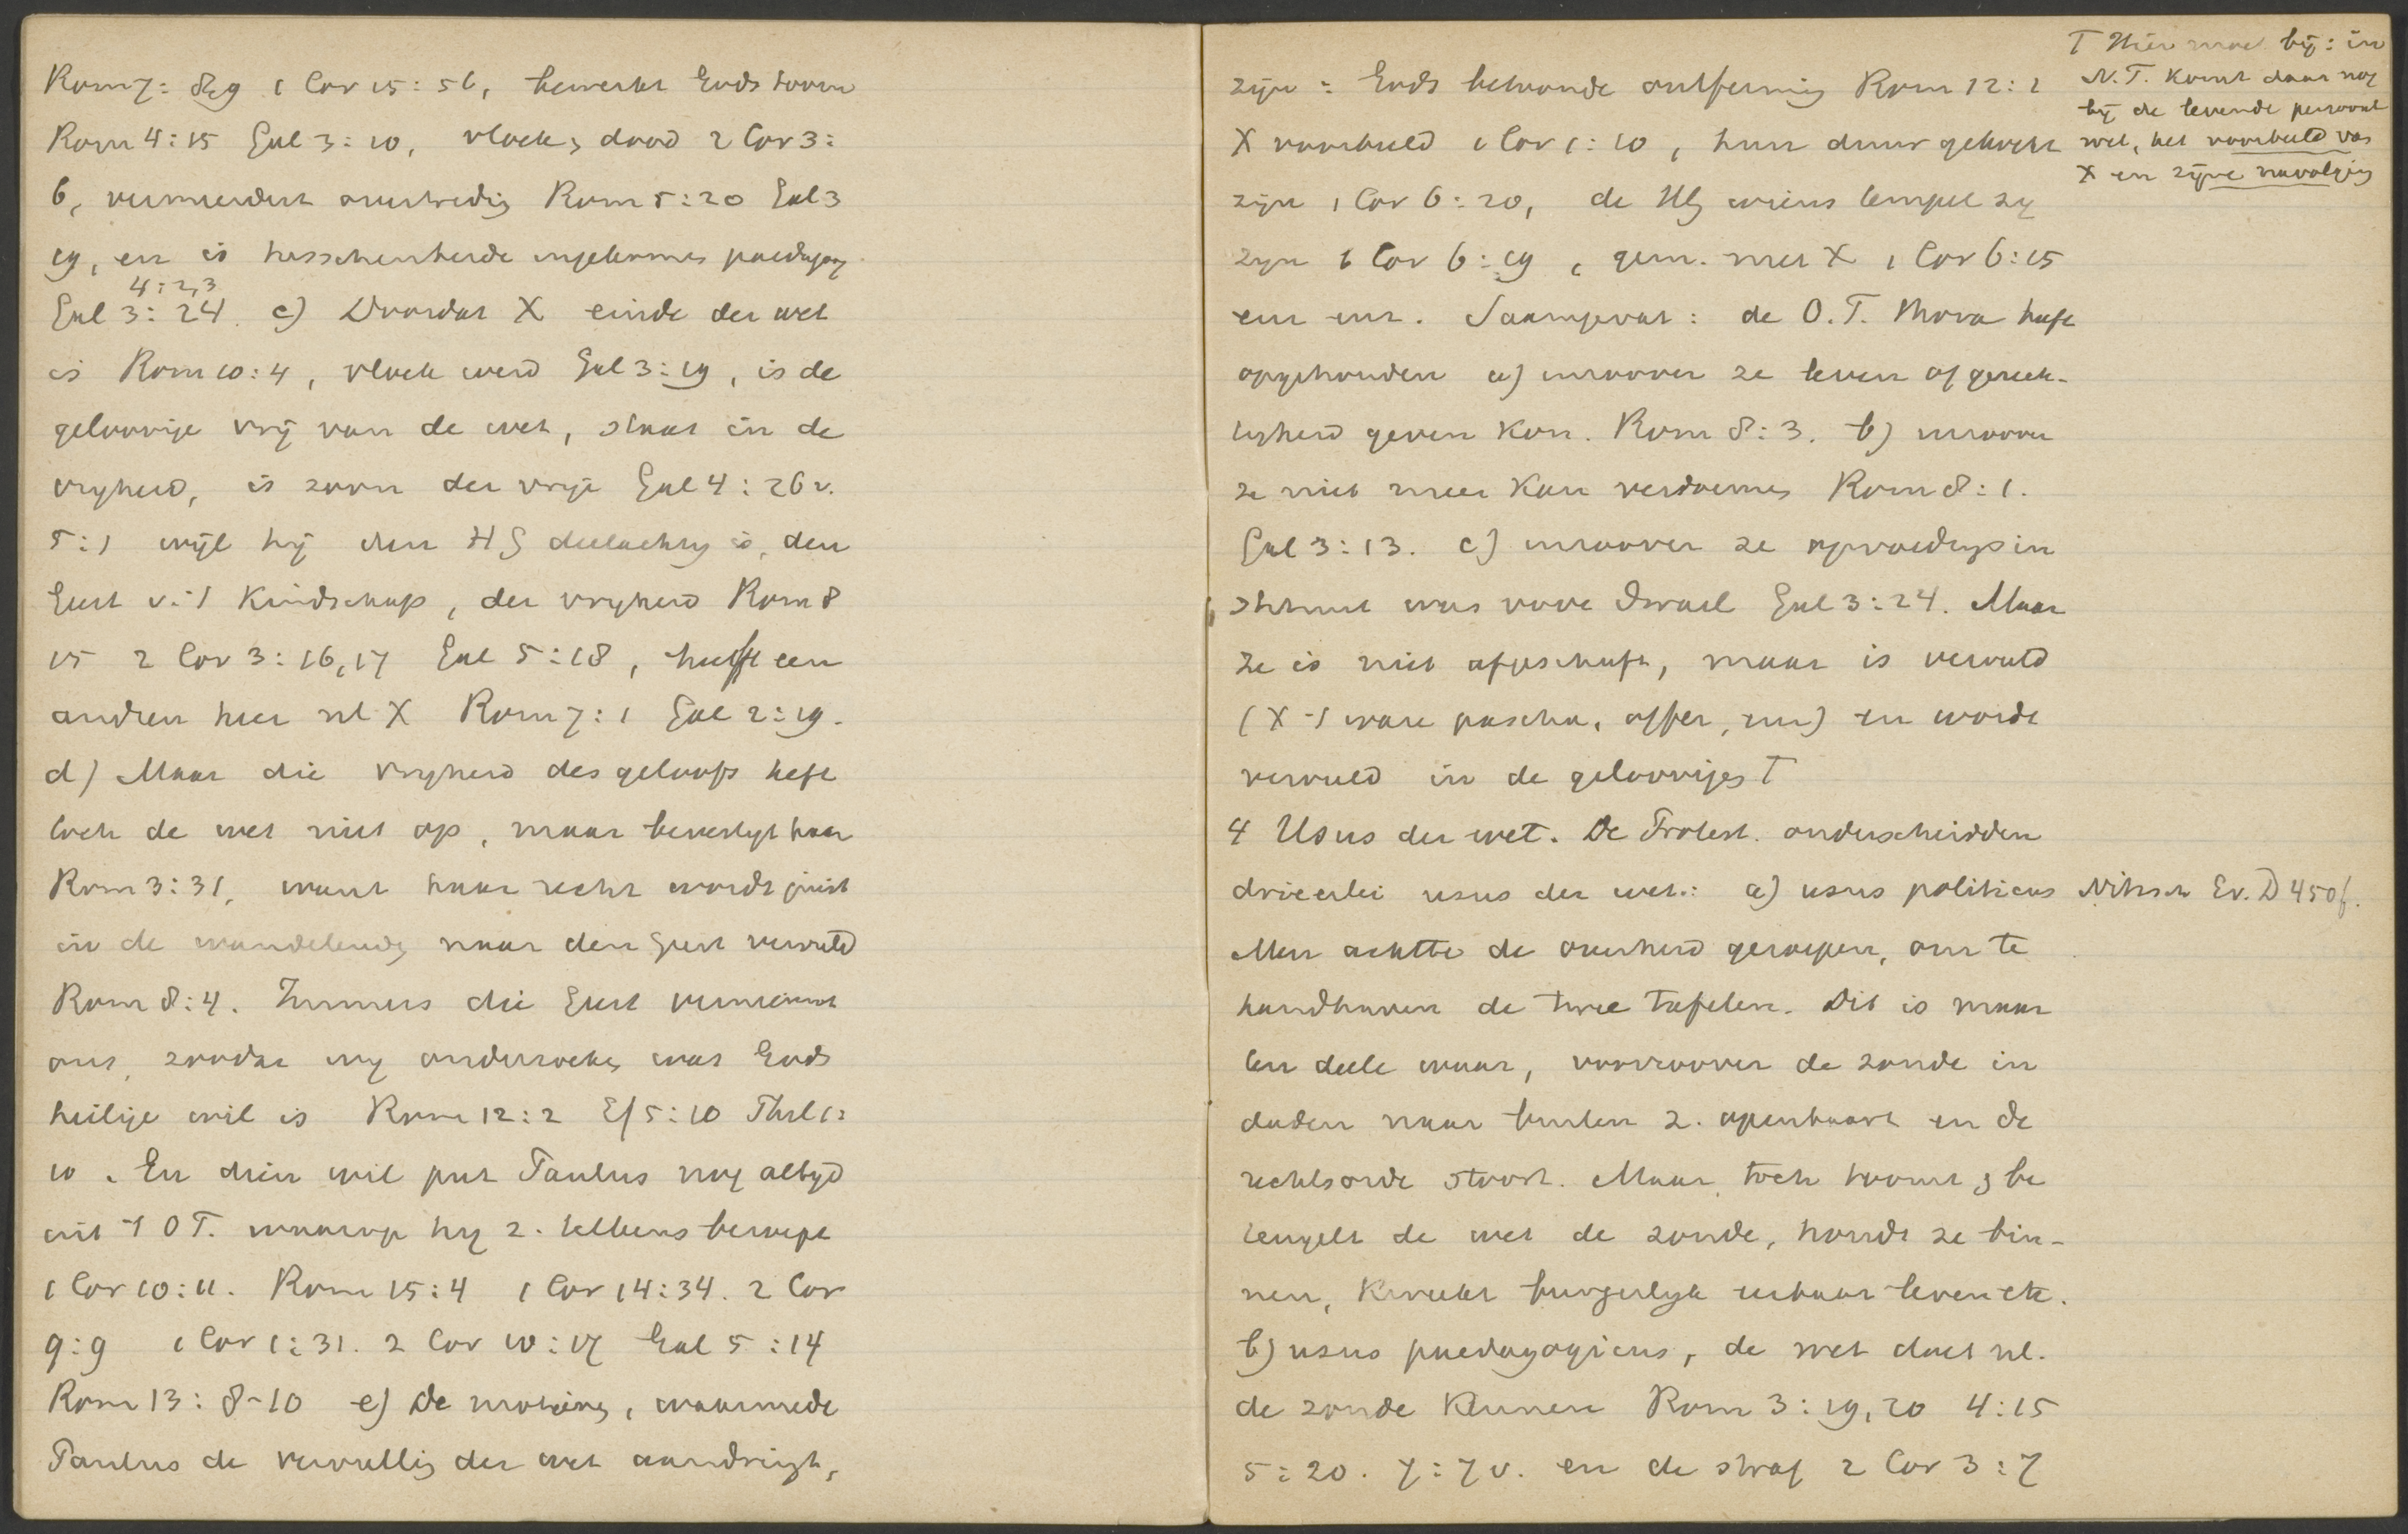 Rom 7: 8, 9 1 Cor 15: 56, bewerkt Gods toorn
Rom 4: 15 Gal 3: 10, vloek, dood 2 Cor 3:
6, vermeerdert overtreding Rom 5: 20 Gal 3
19, en is tusschenbeide ingekomen paedagog
4: 2, 3
Gal 3: 24. c) Doordat X einde der wet
is Rom 10: 4, vloek werd Gal 3: 19, is de
geloovige vrij van de wet, staat in de
vryheid, is zoon der vrije Gal 4: 26 v.
5: 1 wijl hij den HG deelachtig is, den
Geest v. 't Kindschap, der vryheid Rom 8
15 2 Cor 3: 16, 17 Gal 5: 18, heeft een
andren heer nl X Rom 7: 1 Gal 2: 19.
d) Maar die vryheid des geloofs heft
toch de wet niet op, maar bevestigt haar
Rom 3: 31, want haar recht wordt juist
in de wandelende naar den Geest vervuld
Rom 8: 4. Immers die Geest vernieuwt
ons, zoodat wy onderzoeken wat Gods
heilige wil is Rom 12: 2 Ef 5: 10 Phil 1:
10. En dien wil put Paulus nog altyd
uit 't O T. waarop hy z. telkens beroept
1 Cor 10: 11. Rom 15: 4 1 Cor 14: 34. 2 Cor
9: 9 1 Cor 1: 31. 2 Cor 10: 17 Gal 5: 14
Rom 13: 8-10 e) De motieven, waarmede
Paulus de vervulling der wet aandringt,
zijn: Gods betoonde ontferming Rom 12: 1
X voorbeeld 1 Cor 1: 10, hun duur gekocht
zijn 1 Cor 6: 20, de HG wiens tempel zy
zyn 1 Cor 6: 19, gem. met X 1 Cor 6: 15
enz enz. Saamgevat: de O. T. Thora heeft
opgehouden a) inzoover ze leven of gerech-
tigheid geven kon. Rom 8: 3. b) inzoover
ze niet meer kan verdoemen Rom 8: 1.
Gal 3: 13. c) inzoover ze opvoedings in
strument was voor Israel Gal 3: 24. Maar
ze is niet afgeschaft, maar is vervuld
(X 't ware pascha, offer, enz) en wordt
vervuld in de geloovigen T
4 Usus der wet. De Protest. onderscheidden
drieerlei usus der wet: a) usus politicus
Men achtte de overheid geroepen, om te
handhaven de twee tafelen. Dit is maar
ten deele waar, voorzoover de zonde in
daden naar buiten z. openbaart en de
rechtsorde stoort. Maar toch toomt, be
teugelt de wet de zonde, houdt ze bin-
nen, kweekt burgerlyk eerbaar leven etc.
b) usus paedagogicus, de wet doet nl.
de zonde kennen Rom 3: 19, 20 4: 15
5: 20. 7: 7 v. en de straf 2 Cor 3: 7
T Hier bij: in
N. T. komt daar nog
bij de levende persoonl
wet, het voorbeeld van
X en zijne navolging
Nitzsch Ev. D 450f.